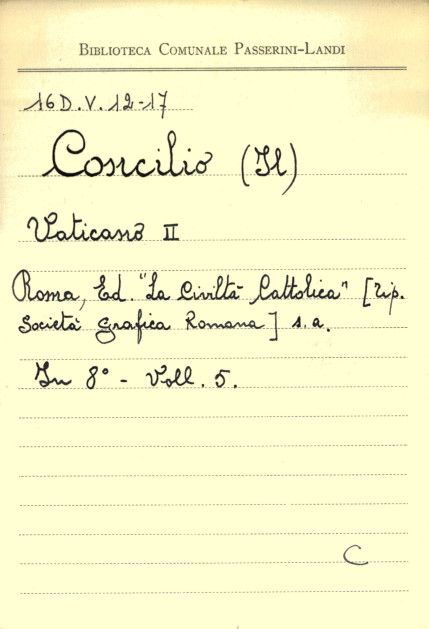 BIBLIOTECA COMUNALE PASSERINI-LANDI
16 D. V. 12-17
Concilio (Il)
Vaticano II
Roma, Ed. "La Civiltà Cattolica" [tip.
Società Grafica Romana] s. a.
In 8° - Voll. 5.
C